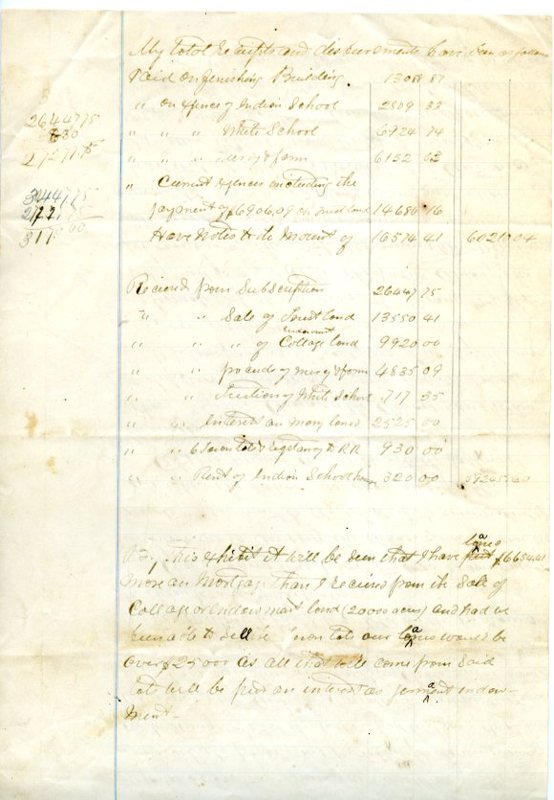 My total receipts and disbursements have been as follows
Paid on finishing Building 13088 87
" " Expenses of Indian School 2809 33
" " " White School 6924 74
" " " & farm 6132 63
" Current expences including the
payment of $6906.09 on Trust land 14680 16
Have Notes to the Amount of 16574 41 60210 04
264475
27271.75
Recieved from Subscription 26447 75
" " Sale of Trust land 13550 41
" " " of College land 9920 00
" " proceeds of & farm 4835 09
" " Tuition of White School 717 35
" " Interest on money loaned 2525 00
" " to RR 930 00
" " Rent of Indian School house 320 00
By This Exhibit it will be seen that I have $6654.41
more on Mortgage than I recieved from the Sale of
College or Endowment land (20000 acres) and had we
been able to sell the town lots our loans would be
over $25000 as all that will come from Said
lots will be put on interest as permanent endow-
ment -